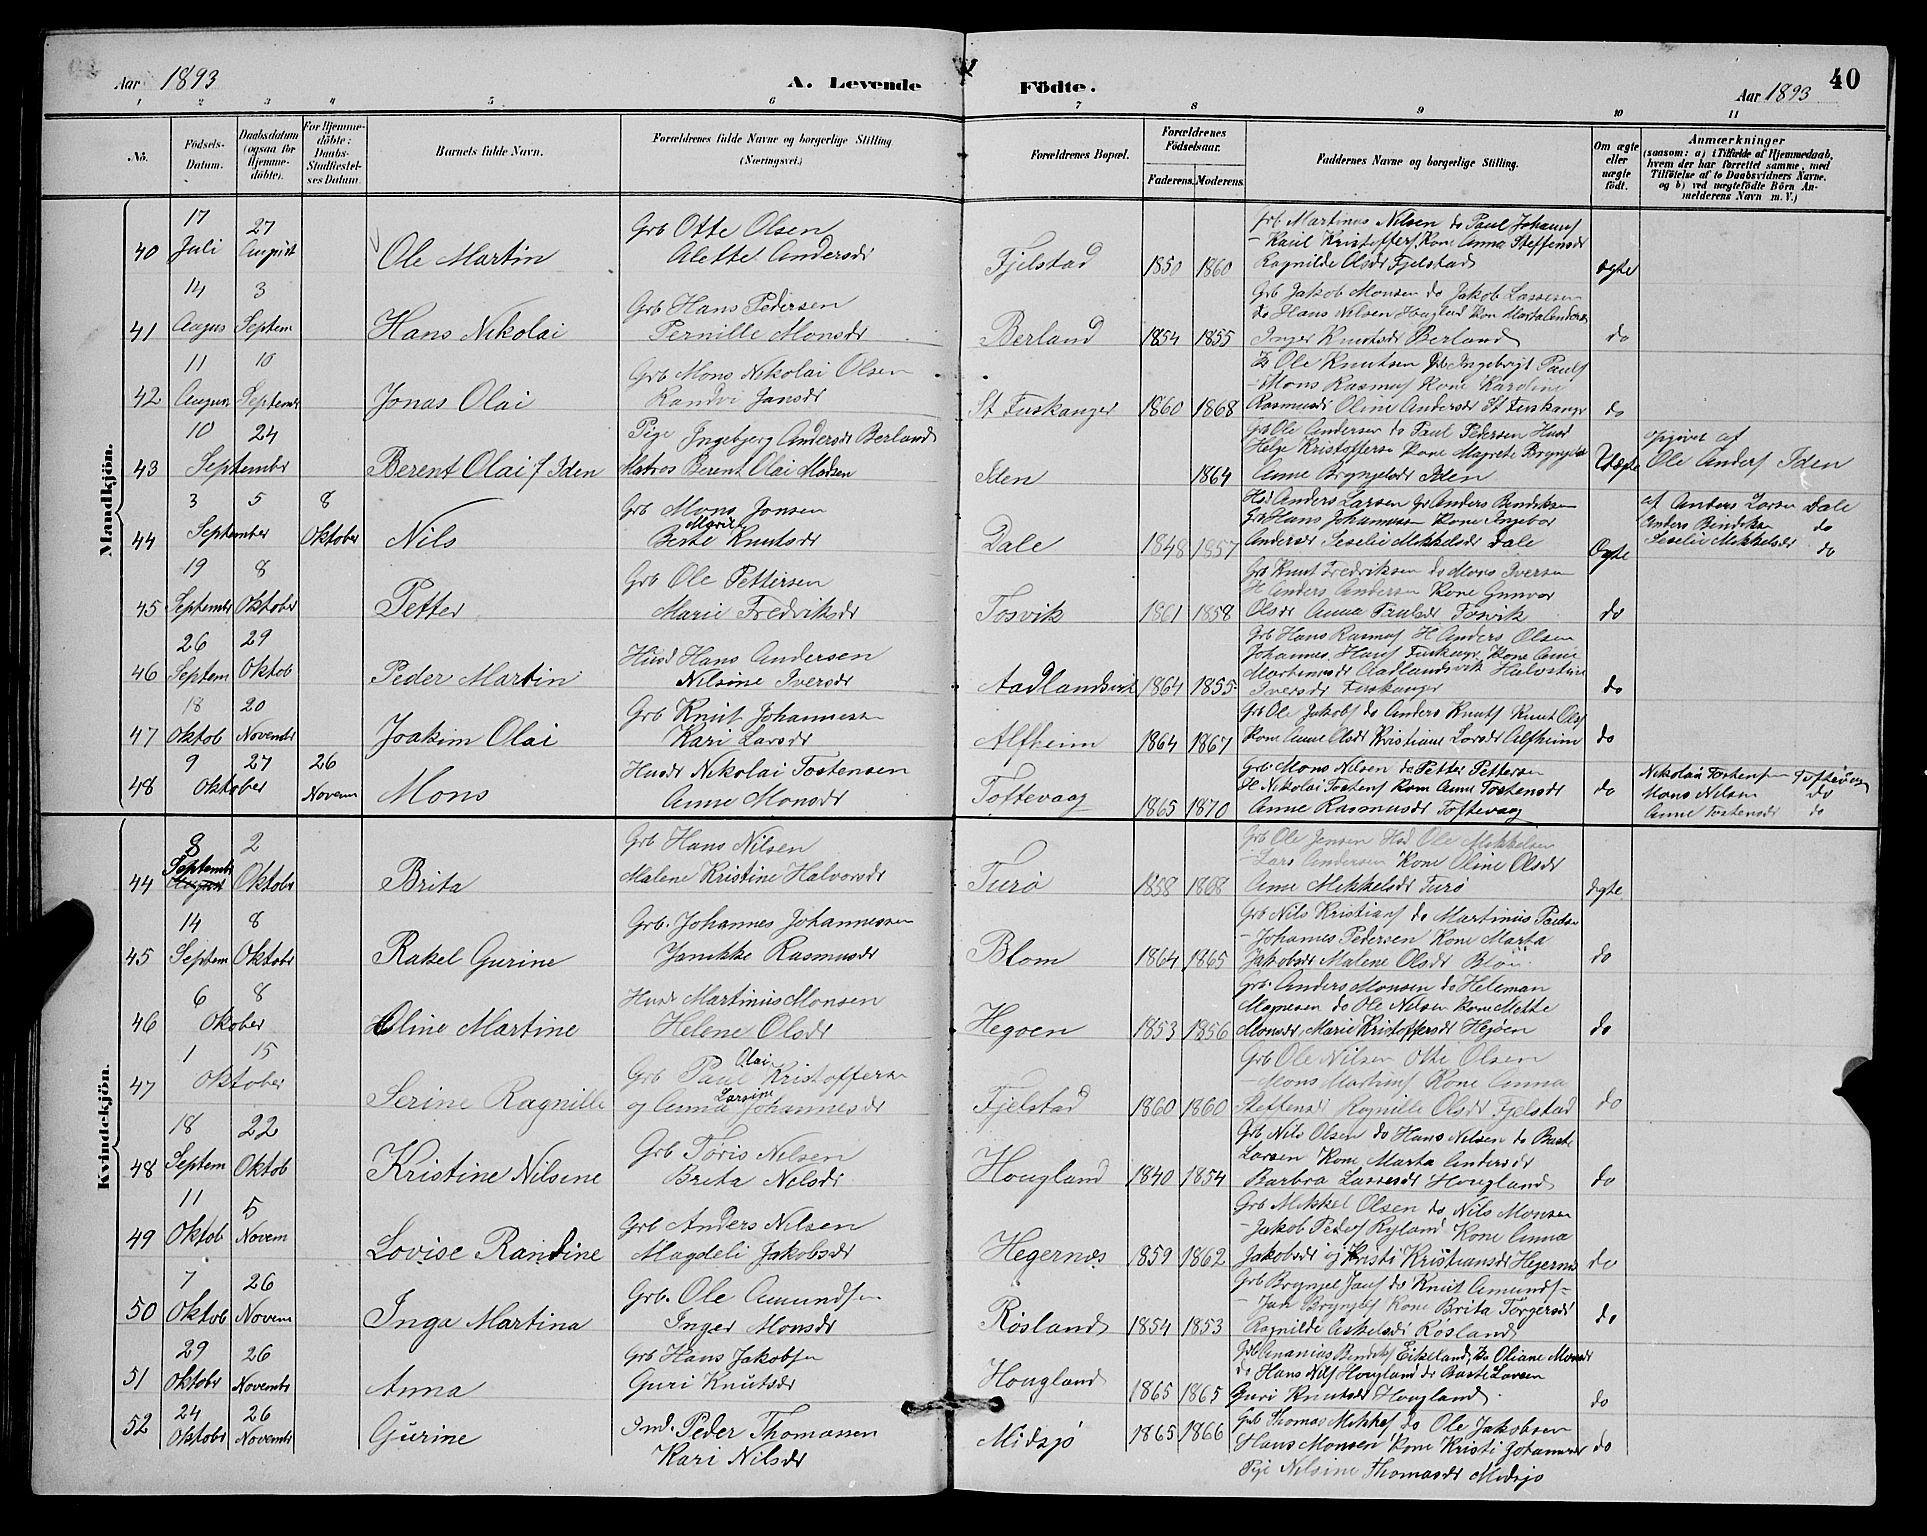 Aar 1893
A. Levende
Födte.
Aar 1893
40
1 2 3 4 5 6 7 8 9 10 11
No.
Födsels-Datum.
Daabsdatum (ogsaa for Hjemme-döbte).
For Hjemme-döbte: Daabs-Stadfæstel-ses Datum.
Barnets fulde Navn.
Forældrenes fulde Navne og borgerlige Stilling (Næringsvei.)
Forældrenes Bopæl.
Forældrenes Födselsaar.
Faderens. Moderens.
Faddernes Navne og borgerlige Stilling.
Om ægte eller uægte födt.
Anmærkninger
(saasom: a) i Tilfælde af Hjemmedaab, hvem der har forrettet samme, med Tilföielse af to Daabsvidners Navne, og b) ved uægtefödte Börn An-melderens Navn m. V.)
Mandkjön.
40 17 Juli 27 August Ole Martin Grb Otte Olsen
Alette Andersdr Fjelstad 1850 1860
Grb. Martinus Nilsen do Paul Johans
Kone Anna Steffensdr
Ragnilde Olsdr Fjelstad ægte
41 14 Augus 3 Septem Hans Nikolai Grb Hans Pedersen
Pernille Monsdr Berland 1854 1855
Grb Jakob Monsen do Jakob Lassesen
do Hans Nilsen Hougland Kone Marta Andersdr
Inger Knutsdr Berland do
42 11 Augus 10 Septembr Jonas Olai Grb Mons Nikolai Olsen
Randvi Jansdr St Fuskanger 1860 1868
Ole Knutsen Ingebrigt Pauls
Mons Rasmus Kone Karoline
Rasmusdr Oline Andersdr St Fuskanger do
43 10 24 September Berent Olai f Iden Pige Ingebjerg Andersdr Berland
Matros Berent Olai Madsen Iden 1864
Grb Ole Andersen do Paul Pedersen Husd
Helge Kristoffersen Kone Magrete Bryngelsdr
Anne Bryngelsdr Iden Uægte
opgivet af
Ole Anders Iden
44 3 5 September 8 Oktober Nils Grb Mons Jonsen
Marite
Berte Knutsdr Dale 1848 1857
Hsd Anders Larsen Gr Anders Bendiksen
Grb Hans Johannessen Kone Ingebor
Andersdr Seselie Mikkelsdr Dale Ægte
af Anders Larsen Dale
Anders Bendiksen do
Seselie Mikkelsdr do
45 19 Septembr 8 Oktober Petter Grb Ole Pettersen
Marie Fredriksdr Tosvik 1861 1858
Grb Knut Fredriksen do Mons Iversen
H Anders Andersen Kone Gunvor
Olsdr Anna Paulsdr Tosvik do
46 26 Septem 29 Oktob Peder Martin Husd Hans Andersen
Nilsine Iversdr Aadlandsvik 1864 1855
Grb Hans Rasmus H Anders Olsen
Johannes Hans Fuskanger Kone Anne
Mortensdr Aadlandsvik Halvstine
Iversdr Fuskanger do
47 18 Oktob 20 Novembr Joakim Olai Grb Knut Johannessen
Kari Larsdr Alfheim 1864 1867
Grb Ole Jakobs do Anders Knuts Knut Ols
Kone Anne Olsdr Kristiane Larsdr Alfheim do
48 9 27 Oktober 26 Novem Mons Husdr Nikolai Tostensen
Anne Monsdr Toftevaag 1865 1870
Grb. Mons Nilsen do Petter Pettersen
H Nikolai Tostens Kone Anne Tostensdr
Anne Rasmusdr Toftevaag do
Nikolai Tostensen Toftevaag
Mons Nilsen do
Anne Tostensdr do
Kvindekjön.
44 8 Septembr 2 Oktobr Brita Grb Hans Nilsen
Malene Kristine Halvorsdr Turø 1858 1868
Grb Ole Jensen Hsd Ole Mikkelsen
Lars Andersen Kone Oline Olsdr
Anne Mikkelsdr Turø ægte
45 14 Septem 8 Oktobr Rakel Gurine Grb. Johannes Johannessen
Janikke Rasmusdr Blom 1864 1865
Grb Nils Kristians do Martinus Paulsen
Johannes Pedersen Kone Marta
Jakobsdr Malene Olsdr do
46 6 8 Okober Oline Martine Husdr Martinus Monsen
Helene Olsdr Hegøen 1853 1856
Grb. Anders Monsen do Heleman
Magnesen do Ole Nilsen Kone Mette
Monsdr, Marie Kristoffersdr Hegøen do
47 1 15 Oktober Serine Ragnille Grb Paul Olai Kristoffersen
og Anna Larsine Johannesdr Fjelstad 1860 1860
Grb Ole Nilsen Otte Olsen
Mons Martinus Kone Anna
Steffensdr Ragnille Olsdr Fjelstad do
48 18 Septem 22 Oktob Kristine Nilsine Grb Toris Nilsen
Brita Nilsdr Hougland 1840 1854
Grb Nils Olsen do Hans Nilsen do Baste
Larsen Kone Marta Andersdr
Barbra Lassesdr Hougland do
49 11 Oktob 5 Novem Lovise Randine Grb Anders Nilsen
Magdeli Jakobsdr Hegernæs 1859 1862
Grb Mikkel Olsen do Nils Monsen
Jakob Peders Ryland Kone Anna
Jakobsdr og Kristi Kristiansdr Hegernæs do
50 7 Oktob 26 Novem Inga Martina Grb. Ole Amundsen
Inger Monsdr Røsland 1854 1853
Grb Bryngel Jans do Knut Amunds
Jan Bryngels Kone Brita Torgersdr
Ragnilde Askelsdr Røsland do
51 29 Oktobr 26 Novembr Anna Grb Hans Jakobsen
Guri Knutsdr Hougland 1865 1865
Grb Ananias Bendiks Eikeland, Oliane Monsdr
do Hans Nils Hougland do Baste Larsen
Guri Knutsdr Hougland. do
52 24 Oktobr 26 Novembr Gurine Ind. Peder Thomassen
Kari Nilsdr Midsjø 1865 1866
Grb Thomas Mikkels do Ole Jakobsen
Hans Monsen Kone Kristi Johannesdr
Pige Nilsine Thomasdr Midsjø do